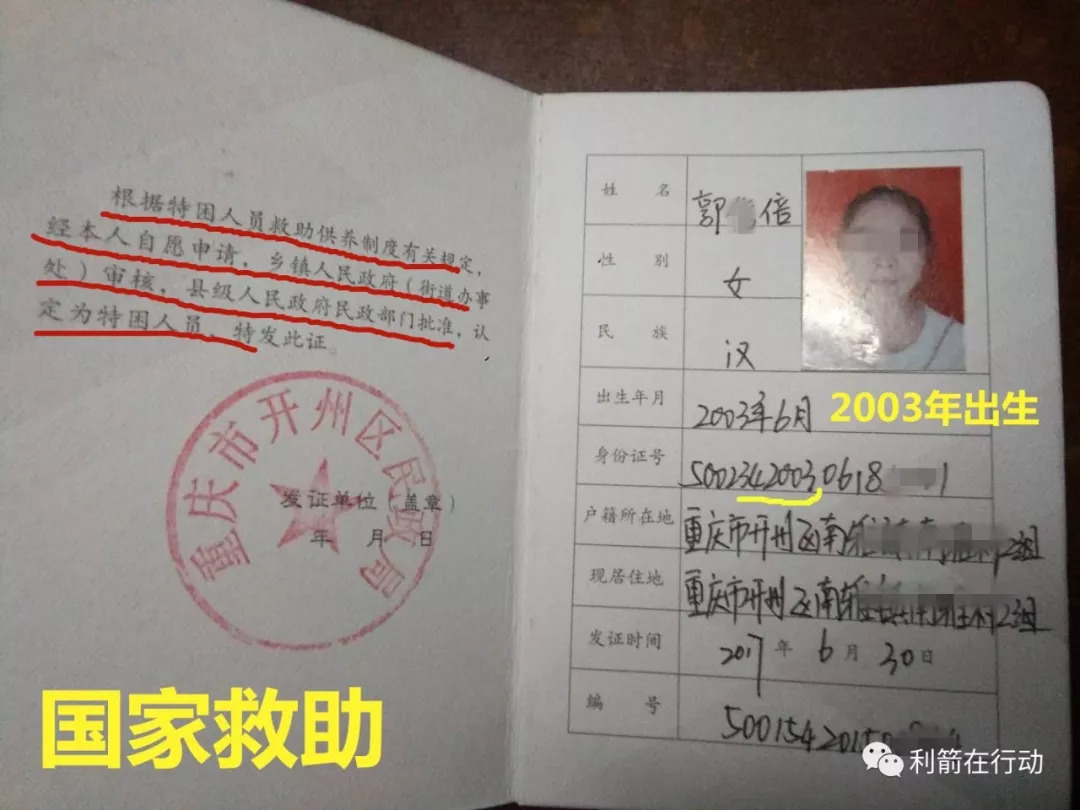 根据特困人员救助供养制度有关规定，
经本人自愿申请，乡镇人民政府（街道办事
处）审核，县级人民政府民政部门批准，认
定为特困人员，特发此证。
重庆市开州区民政局
发证单位（盖章）
年 月 日
国家救助
姓 名 郭 倍
性 别 女
民 族 汉
出生年月 2003年6月
2003年出生
身份证号 50023420030618 1
户籍所在地 重庆市开州区南雅 2组
现居住地 重庆市开州区南雅 2组
发证时间 2017年6月30日
编 号 50015420150
利箭在行动